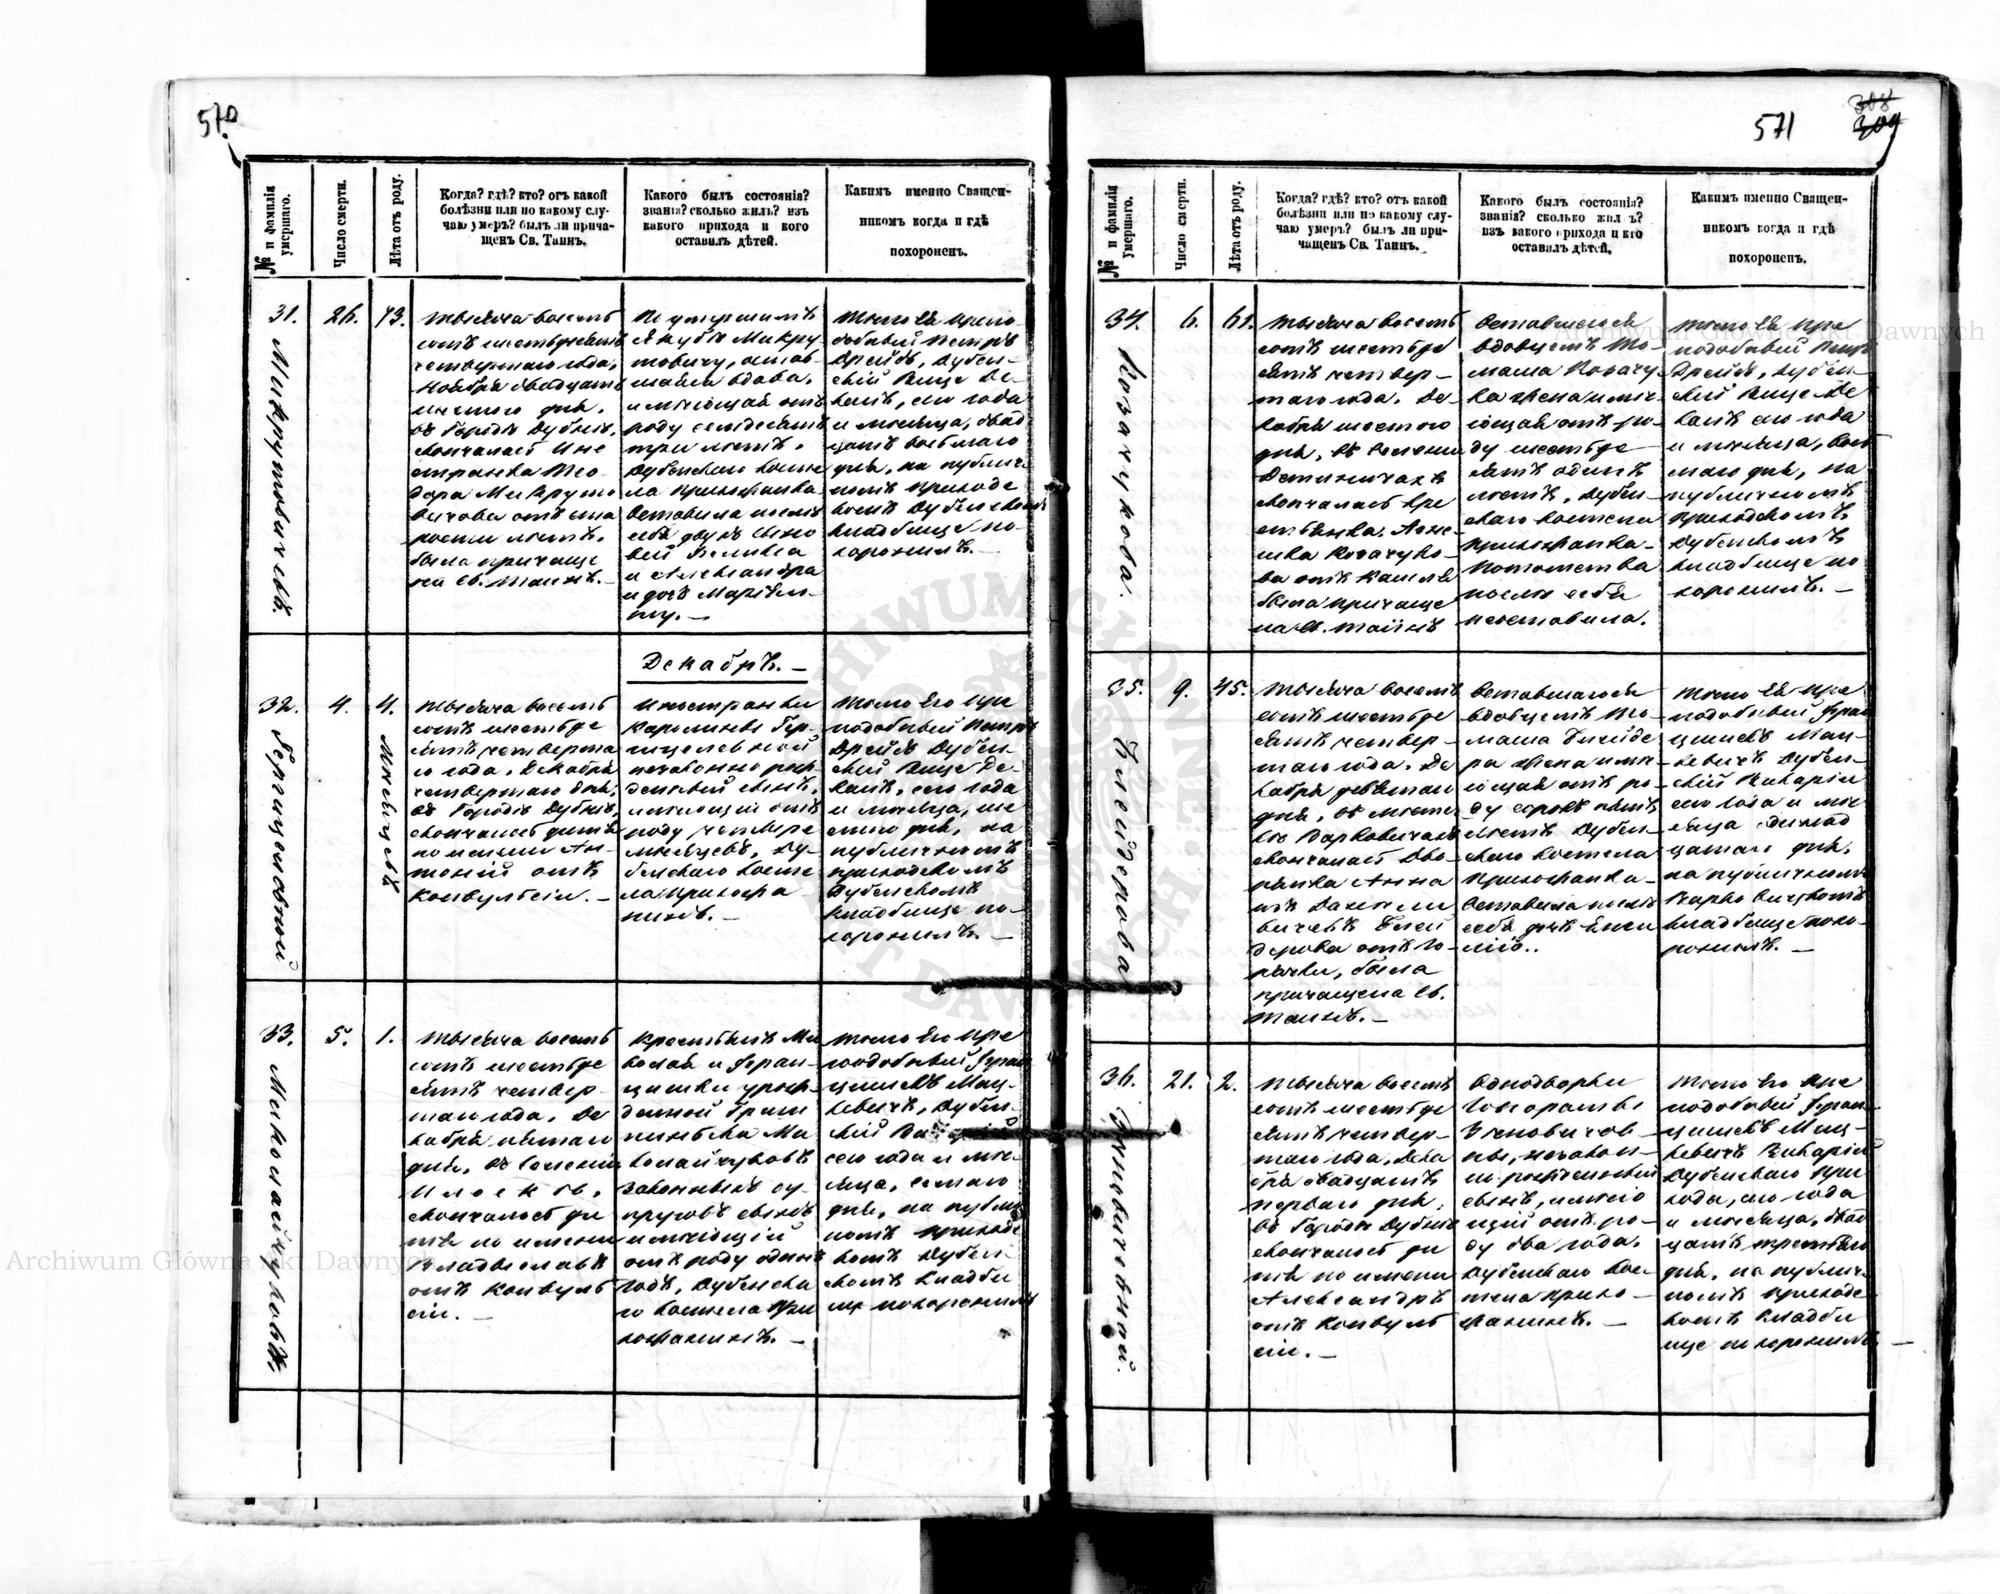 570
№ и фамилія умершаго.
Число смерти.
Лѣта отъ роду.
Когда? гдѣ? кто? отъ какой
болѣзни или по какому слу-
чаю умеръ? былъ ли прича-
щенъ Св. Таинъ.
Какого былъ состоянія?
званія? сколько жилъ? изъ
какого прихода и кого
оставилъ дѣтей.
Какимъ именно Священ-
никомъ когда и гдѣ
похороненъ.
31.
26.
73.
Тысяча восемь
сотъ шестьдесятъ
четвертаго года,
Ноября двадцать
шестого дня,
въ Городѣ Дубнѣ,
скончалась Ино
странка Тео
дора Микруто
вичова отъ ста
рости лѣтъ.
была причаще
на Св. Таинъ. —
По умершимъ
Якубѣ Микру
товичу, остав
шаяся вдова,
имеющая отъ
роду семдесятъ
три лѣтъ.
Дубенскаго косте
ла прихожанка
Оставила послѣ
себя двухъ сыно
вей Феликса
и Александра
и дочь Маріян-
ну. —
Тѣло Ея Препо
добный Петръ
Дрейдъ, Дубен-
скій Вице Де-
канъ, сего года
и мѣсяца, двад
цать восьмаго
дня, на публич
номъ приходс
комъ Дубенскомъ
кладбище по-
хоронилъ. —
Декабрь. —
32.
4.
4.
мѣсяцевъ
Тысяча восемь
сотъ шестьде
сятъ четверта
го года, Декабря
четвертаго дня,
въ Городѣ Дубнѣ,
скончалось дитя
по имени Ан-
тоній отъ
конвульсіи. —
Иностранки
Каролины Гер-
незаконно рож
денный сынъ,
имеющій отъ
роду четыре
мѣсяцевъ, Ду-
бенскаго косте
ла прихожа
нинъ. —
Тѣло Его Пре
подобный Петръ
Дрейдъ Дубен-
скій Вице Де-
канъ, сего года
и мѣсяца, ше
стого дня, на
публичномъ
приходскомъ
Дубенскомъ
кладбище по-
хоронилъ. —
33.
5.
1.
Миколайчуковъ.
Тысяча восемь
сотъ шестьде
сятъ четвер-
таго года, Де
кабря пятаго
дня, въ селеніи
скончалось ди
тя по имени
Владыславъ
отъ конвуль
сіи. —
Крестьянъ Ми
колая и Фран-
цишки урож-
денной
Ми
колайчуковъ
законныхъ су-
пруговъ сынъ
имеющій
отъ роду одинъ
годъ, Дубенска
го костела при
хожанинъ. —
Тѣло Его Пре
подобный Фран
цишекъ Мац-
кевичъ, Дубен-
скій Викарій
сего года и мѣ-
сяца, семаго
дня, на публич
номъ приходс
комъ Дубен-
скомъ кладби
щѣ похоронилъ
571
308
309
№ и фамилія умершаго.
Число смерти.
Лѣта отъ роду.
Когда? гдѣ? кто? отъ какой
болѣзни или по какому слу-
чаю умеръ? былъ ли при-
чащенъ Св. Таинъ.
Какого былъ состоянія?
званія? сколько жилъ?
изъ какого прихода и кго
оставилъ дѣтей.
Какимъ именно Священ-
никомъ когда и гдѣ
похороненъ.
34.
6.
61.
Козачукова.
Тысяча восемь
сотъ шестьде
сятъ четвер-
таго года. Де-
кабря шестого
дня, въ селеніи
скончалась Кре
стьянка, Агне-
шка Козачуко-
ва отъ кашля
была причаще
на Св. Таинъ
Оставшагося
вдовцемъ То-
маша Козачу-
ка жена имѣ
ющая отъ ро-
ду шестьде
сятъ одинъ
лѣтъ, Дубен-
скаго костела
прихожанка —
потомства
послѣ себя
неоставила.
Тѣло Ея Пре
подобный Петръ
Дрейдъ, Дубен-
скій Вице Де
канъ сего года
и мѣсяца, вось
маго дня, на
публичномъ
приходскомъ
Дубенскомъ
кладбище по
хоронилъ. —
35.
9.
45.
Тысяча восемь
сотъ шестьде
сятъ четвер-
таго года. Де
кабря девятаго
дня, въ мѣсте
чкѣ Варковичахъ
скончалась Дво-
рянка Анна
изъ Данеле
вичевъ
отъ го-
рячки, была
причащена Св.
Таинъ. —
Оставшагося
вдовцемъ То-
маша
ра жена имѣ
ющая отъ ро
ду сорокъ пять
лѣтъ Дубен-
скаго костела
прихожанка —
Оставила послѣ
себя дочь Еми
лію..
Тѣло Ея Пре
подобный Фран
цишекъ Мац-
кевичъ Дубен-
скій Викарій
сего года и мѣ
сяца одинад
цатаго дня,
на публичномъ
Варковичскомъ
кладбище похо-
ронилъ. —
36.
21.
2.
Тысяча восемь
сотъ шестьде
сятъ четвер-
таго года, Дека
бря двадцать
перваго дня,
въ Городѣ Дубнѣ
скончалось ди
тя по имени
Александръ
отъ конвуль
сіи. —
Однодворки
незакон-
но рожденный
сынъ, имѣю
щій отъ ро-
ду два года.
Дубенскаго кос-
тела прихо —
жанинъ. —
Тѣло Его Пре
подобный Фран-
цишекъ Мац-
кевичъ Викарій
Дубенскаго при
хода, сего года
и мѣсяца, двад
цать третьяго
дня, на публич-
номъ приходс
комъ кладби
ще похоронилъ —
Archiwum Główne Akt Dawnych
Archiwum Główne Akt Dawnych